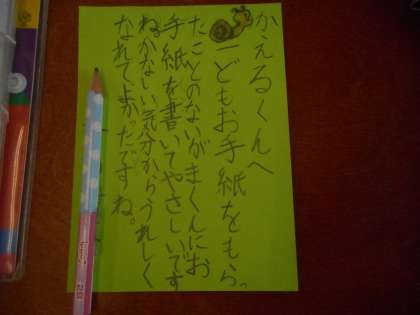 かえるくんへ
一どもお手紙をもらっ
たことのないがまくんにお
手紙を書いてやさしいです
ねかなしい気分からうれしく
なれてよかったですね。